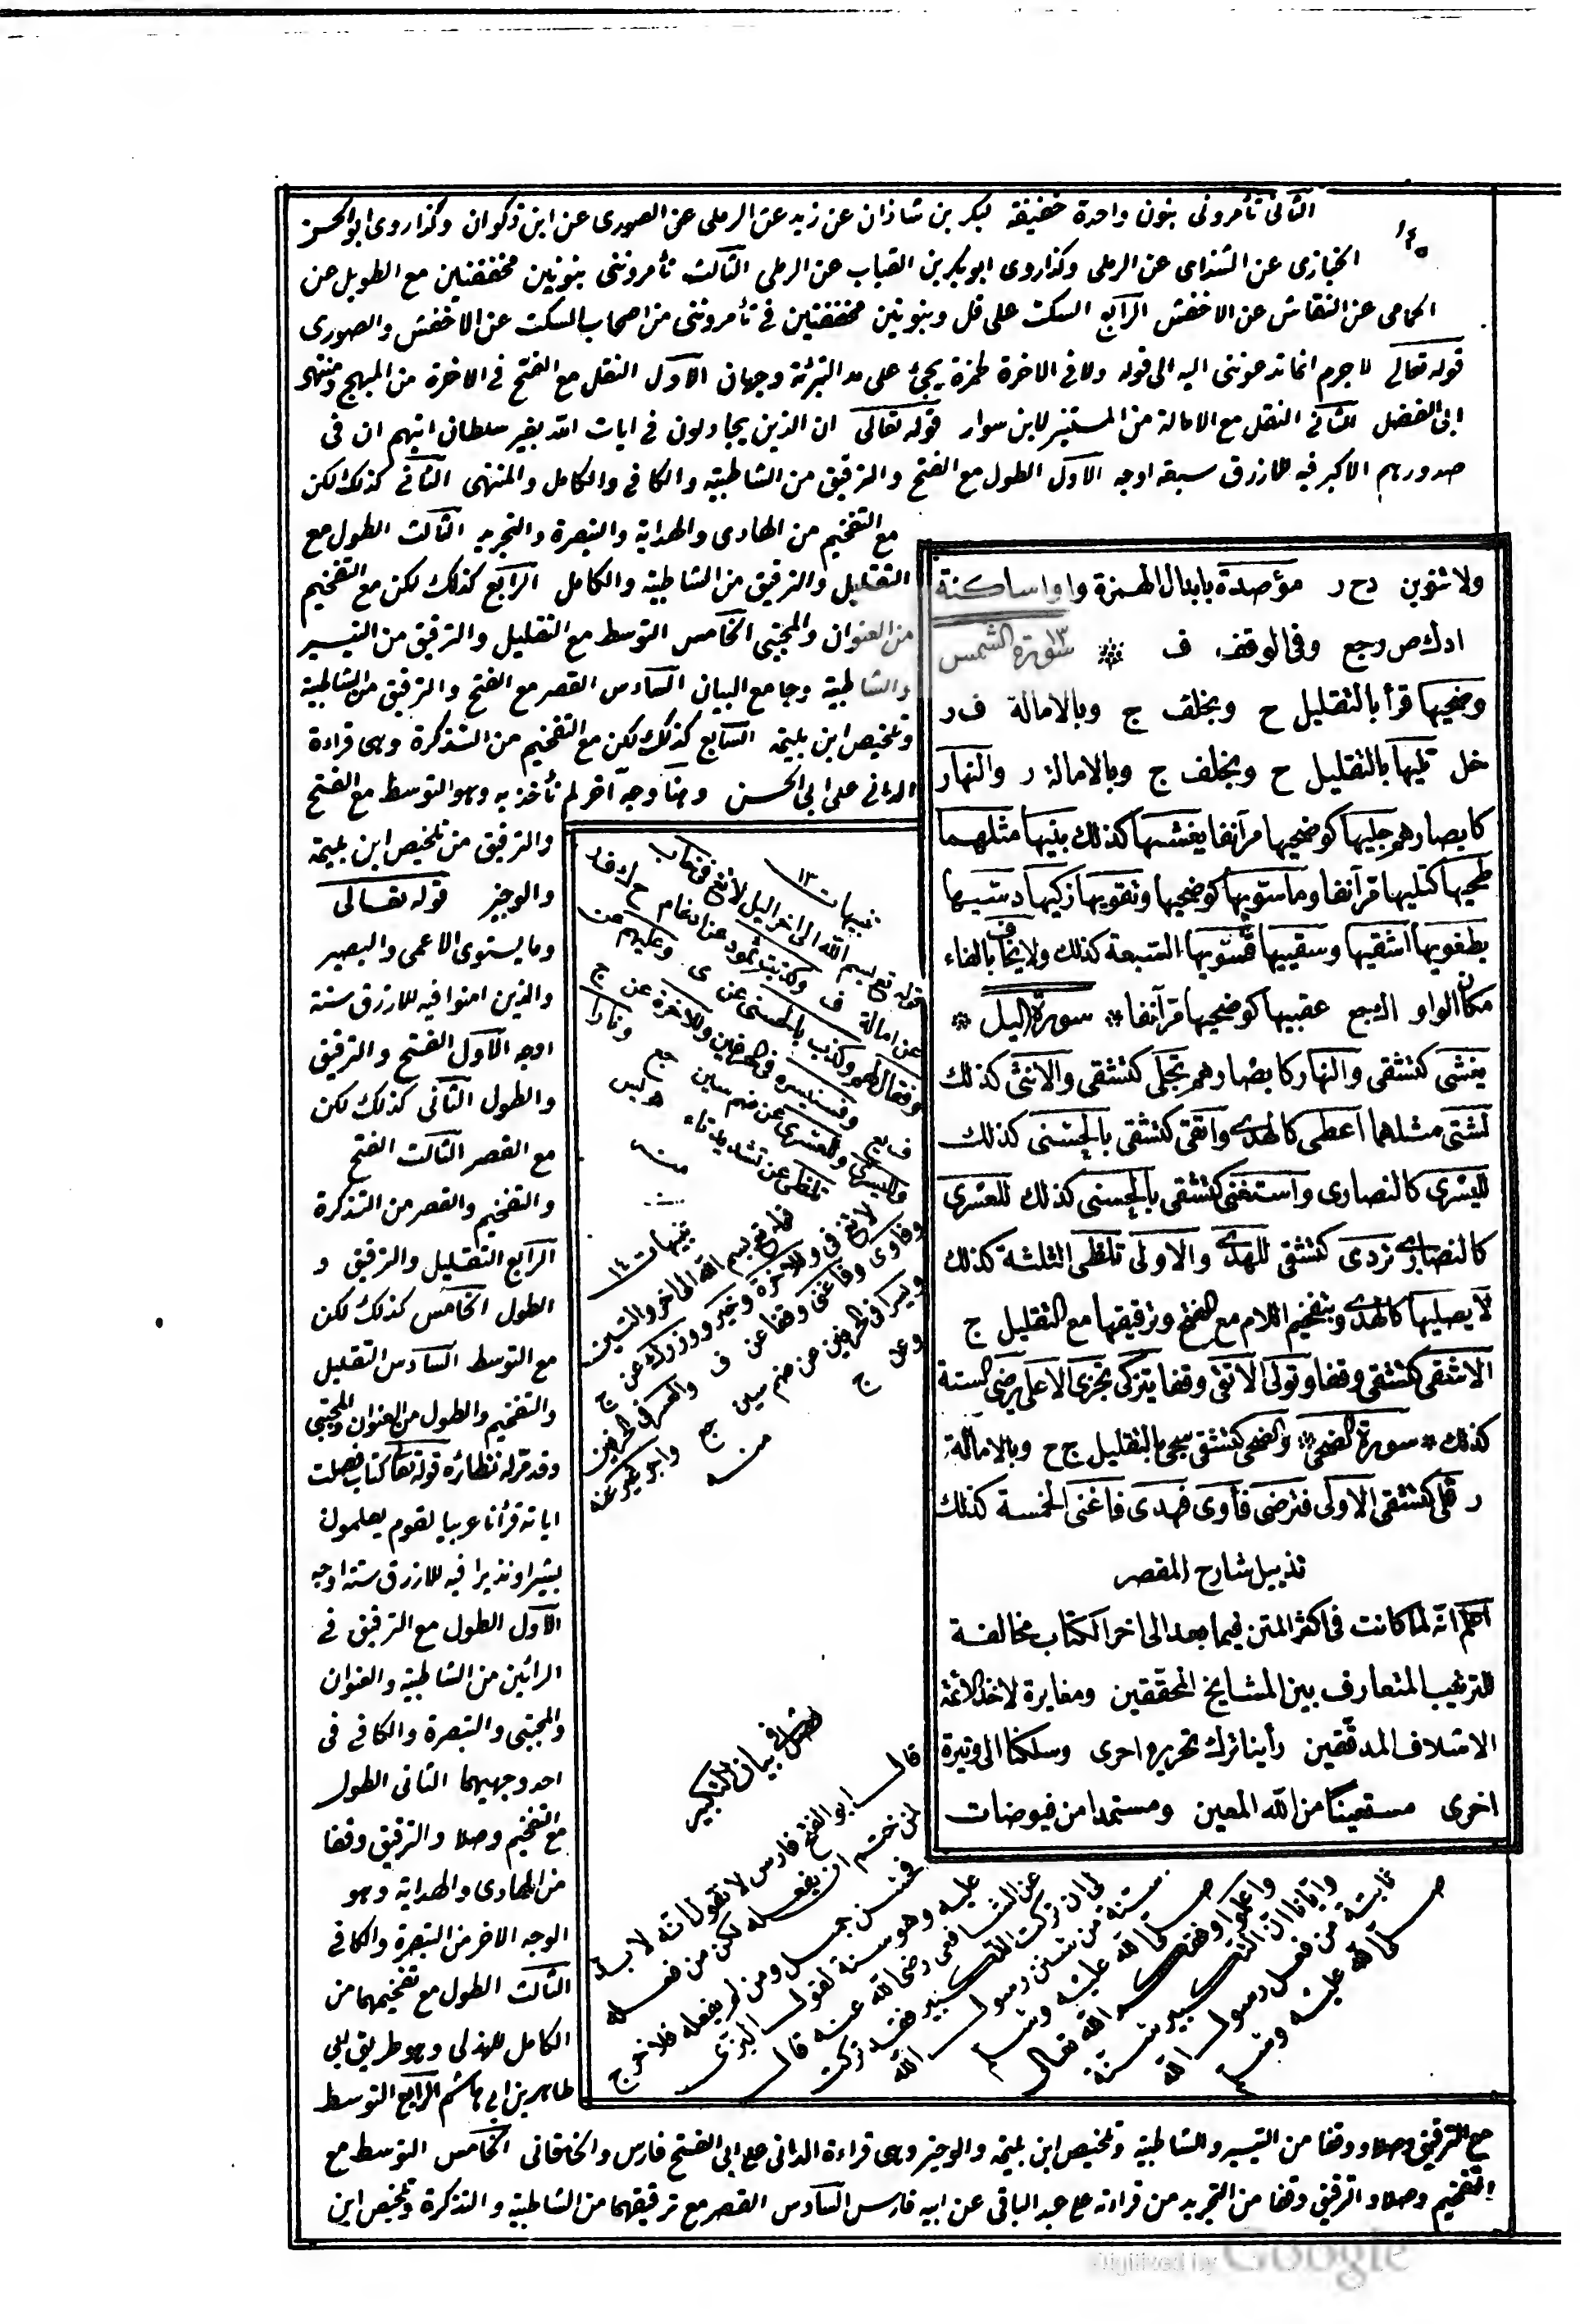 ١٤٠
الثانى تأمرونى بنون واحدة خفيفة لبكر بن شاذان عن زيد عن الرملى عن الصورى عن ابن ذكوان وكذا روى ابو الحسن
الخبازى عن الشذاى عن الرملى وكذا روى ابو بكر بن القباب عن الرملى الثالث تأمروننى بنونين مخففتين مع الطويل عن
الحمامى عن النقاش عن الاخفش الرابع السكت على قل وبنونين مخففتين فى تأمروننى من اصحاب السكت عن الاخفش والصورى
قوله تعالى لا جرم انما تدعوننى اليه الى قوله ولا فى الاخرة لحمزة يجئ على مد التبرئة وجهان الاول النقل مع الفتح فى الاخرة من المبهج ومنتهى
ابى الفضل الثانى النقل مع الامالة من المستنير لابن سوار قوله تعالى ان الذين يجادلون فى ايات الله بغير سلطان اتيهم ان فى
صدورهم الا كبر فيه للازرق سبعة اوجه الاول الطول مع الفتح والترقيق من الشاطبية والكافى والكامل والمنتهى الثانى كذلك لكن
مع التفخيم من الهادى والهداية والتبصرة والتجريد الثالث الطول مع
التقليل والترقيق من الشاطبية والكامل الرابع كذلك لكن مع التفخيم
من العنوان والمجتبى الخامس التوسط مع التقليل والترقيق من التيسير
والشاطبية وجامع البيان السادس القصر مع الفتح والترقيق من الشاطبية
وتلخيص ابن بليمة السابع كذلك لكن مع التفخيم من التذكرة وهى قراءة
الدانى على ابى الحسن وهنا وجه آخر لم نأخذ به وهو التوسط مع الفتح
والترقيق من تلخيص ابن بليمة
والوجيز قوله تعالى
وما يستوى الاعمى والبصير
والذين امنوا فيه للازرق ستة
اوجه الاول الفتح والترقيق
والطول الثانى كذلك لكن
مع القصر الثالث الفتح
والتفخيم والقصر من التذكرة
الرابع التقليل والترقيق و
الطول الخامس كذلك لكن
مع التوسط السادس التقليل
والتفخيم والطول من العنوان والمجتبى
وقد مر له نظائره قوله تعا كتاب فصلت
اياته قرأنا عربيا لقوم يعلمون
بشيرا ونذيرا فيه للازرق ستة اوجه
الاول الطول مع الترقيق فى
الرائين من الشاطبية والعنوان
والمجتبى والتبصرة والكافى فى
احد وجهيهما الثانى الطول
مع التفخيم وصلا والترقيق وقفا
من الهادى والهداية وهو
الوجه الاخر من التبصرة والكافى
الثالث الطول مع تفخيمهما من
الكامل للهذلى وهو طريق ابى
طاهر بن ابى هاشم الرابع التوسط
مع الترقيق وصلا ووقفا من التيسير والشاطبية وتلخيص ابن بليمة والوجيز وهى قراءة الدانى على ابى الفتح فارس والخاقانى الخامس التوسط مع
التفخيم وصلا والترقيق وقفا من التجريد من قراءته على عبد الباقى عن ابيه فارس السادس القصر مع ترقيقهما من الشاطبية والتذكرة وتلخيص ابن
ولا تنوين دح ر مؤصدة بابدال الهمزة واوا ساكنة
ادك ص رجع وفى الوقف ف سورة الشمس
وضحيها قرأ بالتقليل ح وبخلف ج وبالامالة ف ر
خل تليها بالتقليل ح وبخلف ج وبالامالة ر والنهار
كابصارهم جليها كوضحيها مر آنفا يغشيها كذلك بنيها مثلهما
طحيها كتليها مر آنفا وما سوّيها كوضحيها وتقويها زكيها دسّيها
بطغويها اشقيها وسقييها فسوّيها السبعة كذلك ولا يخاف بالفاء
مكان الواو اجع عقبيها كوضحيها مر آنفا سورة اليل
يغشى كتشقى والنهار كابصارهم تجلى كتشقى والانثى كذلك
لشتى مثلها اعطى كالهدى واتقى كتشقى بالحسنى كذلك
لليسرى كالنصارى واستغنى كتشقى بالحسنى كذلك للعسرى
كالنصارى تردى كتشقى للهدى والاولى تلظى الثلثة كذلك
لا يصليها كالهدى وبتفخيم اللام مع الفتح وترقيقها مع التقليل ج
الاشقى كتشقى وقفا وتولى الاتقى وقفا يتزكى تجزى الاعلى يرضى الستة
كذلك سورة الضحى والضحى كتشقى سجى بالتقليل ج ح وبالامالة
ر قلى كتشقى الاولى فترضى فآوى فهدى فاغنى الخمسة كذلك
تذييل شارح المقصر
اعلم انه لما كانت فى اكثر المتن فيما بعد الى اخر الكتاب مخالفة
للترتيب المتعارف بين المشايخ المحققين ومغايرة لاخذ الائمة
الاسلاف المدققين رأينا ترك تحريره احرى وسلكنا الى وتيرة
اخرى مستعينا من الله المعين ومستمدا من فيوضات
تنبيهات ١٣
قوله تع بسم الله الى اخر اليل لا تغ فى خاب
عن امالة ف وكذبت ثمود عن ادغام ح ل ف ر
وكذب بالحسنى عن ى وعليهم عن
ف يع وفسنيسره فى الحرفين وللاخرة عن ج
واليسرى وللعسرى عن ضم سين جع ونارا
تلظى عن تشديد تاء هـ يس
منه
تنبيهات ١٤
قوله تع بسم الله الى اخر والتين
لا تغ فى وللاخرة وخير ووزرك عن ج
وفاوى وفاغنى وقفا عن ف والعسر فى الحرفين
ويسرا فى الحرفين عن ضم سين جع
وعن ج
منه
فصل فى بيان التكبير
قال ابو الفتح فارس لا نقول انه لا بد
لمن ختم ان يفعله لكن من فعله
فحسن جميل ومن لم يفعله فلا حرج
عليه وهو سنة لقول البزى
عن الشافعى رضى الله عنه قال
لى ان تركت التكبير فقد تركت
سنة من سنن رسول الله
صلى الله عليه وسلم
واعلموا وفقكم الله تعالى
وايانا ان التكبير سنة
ثابتة من فعل رسول الله
صلى الله عليه وسلم
Digitized by Google